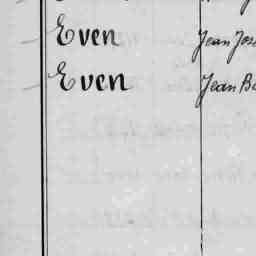 Even Jean Jos
Even Jean Ba